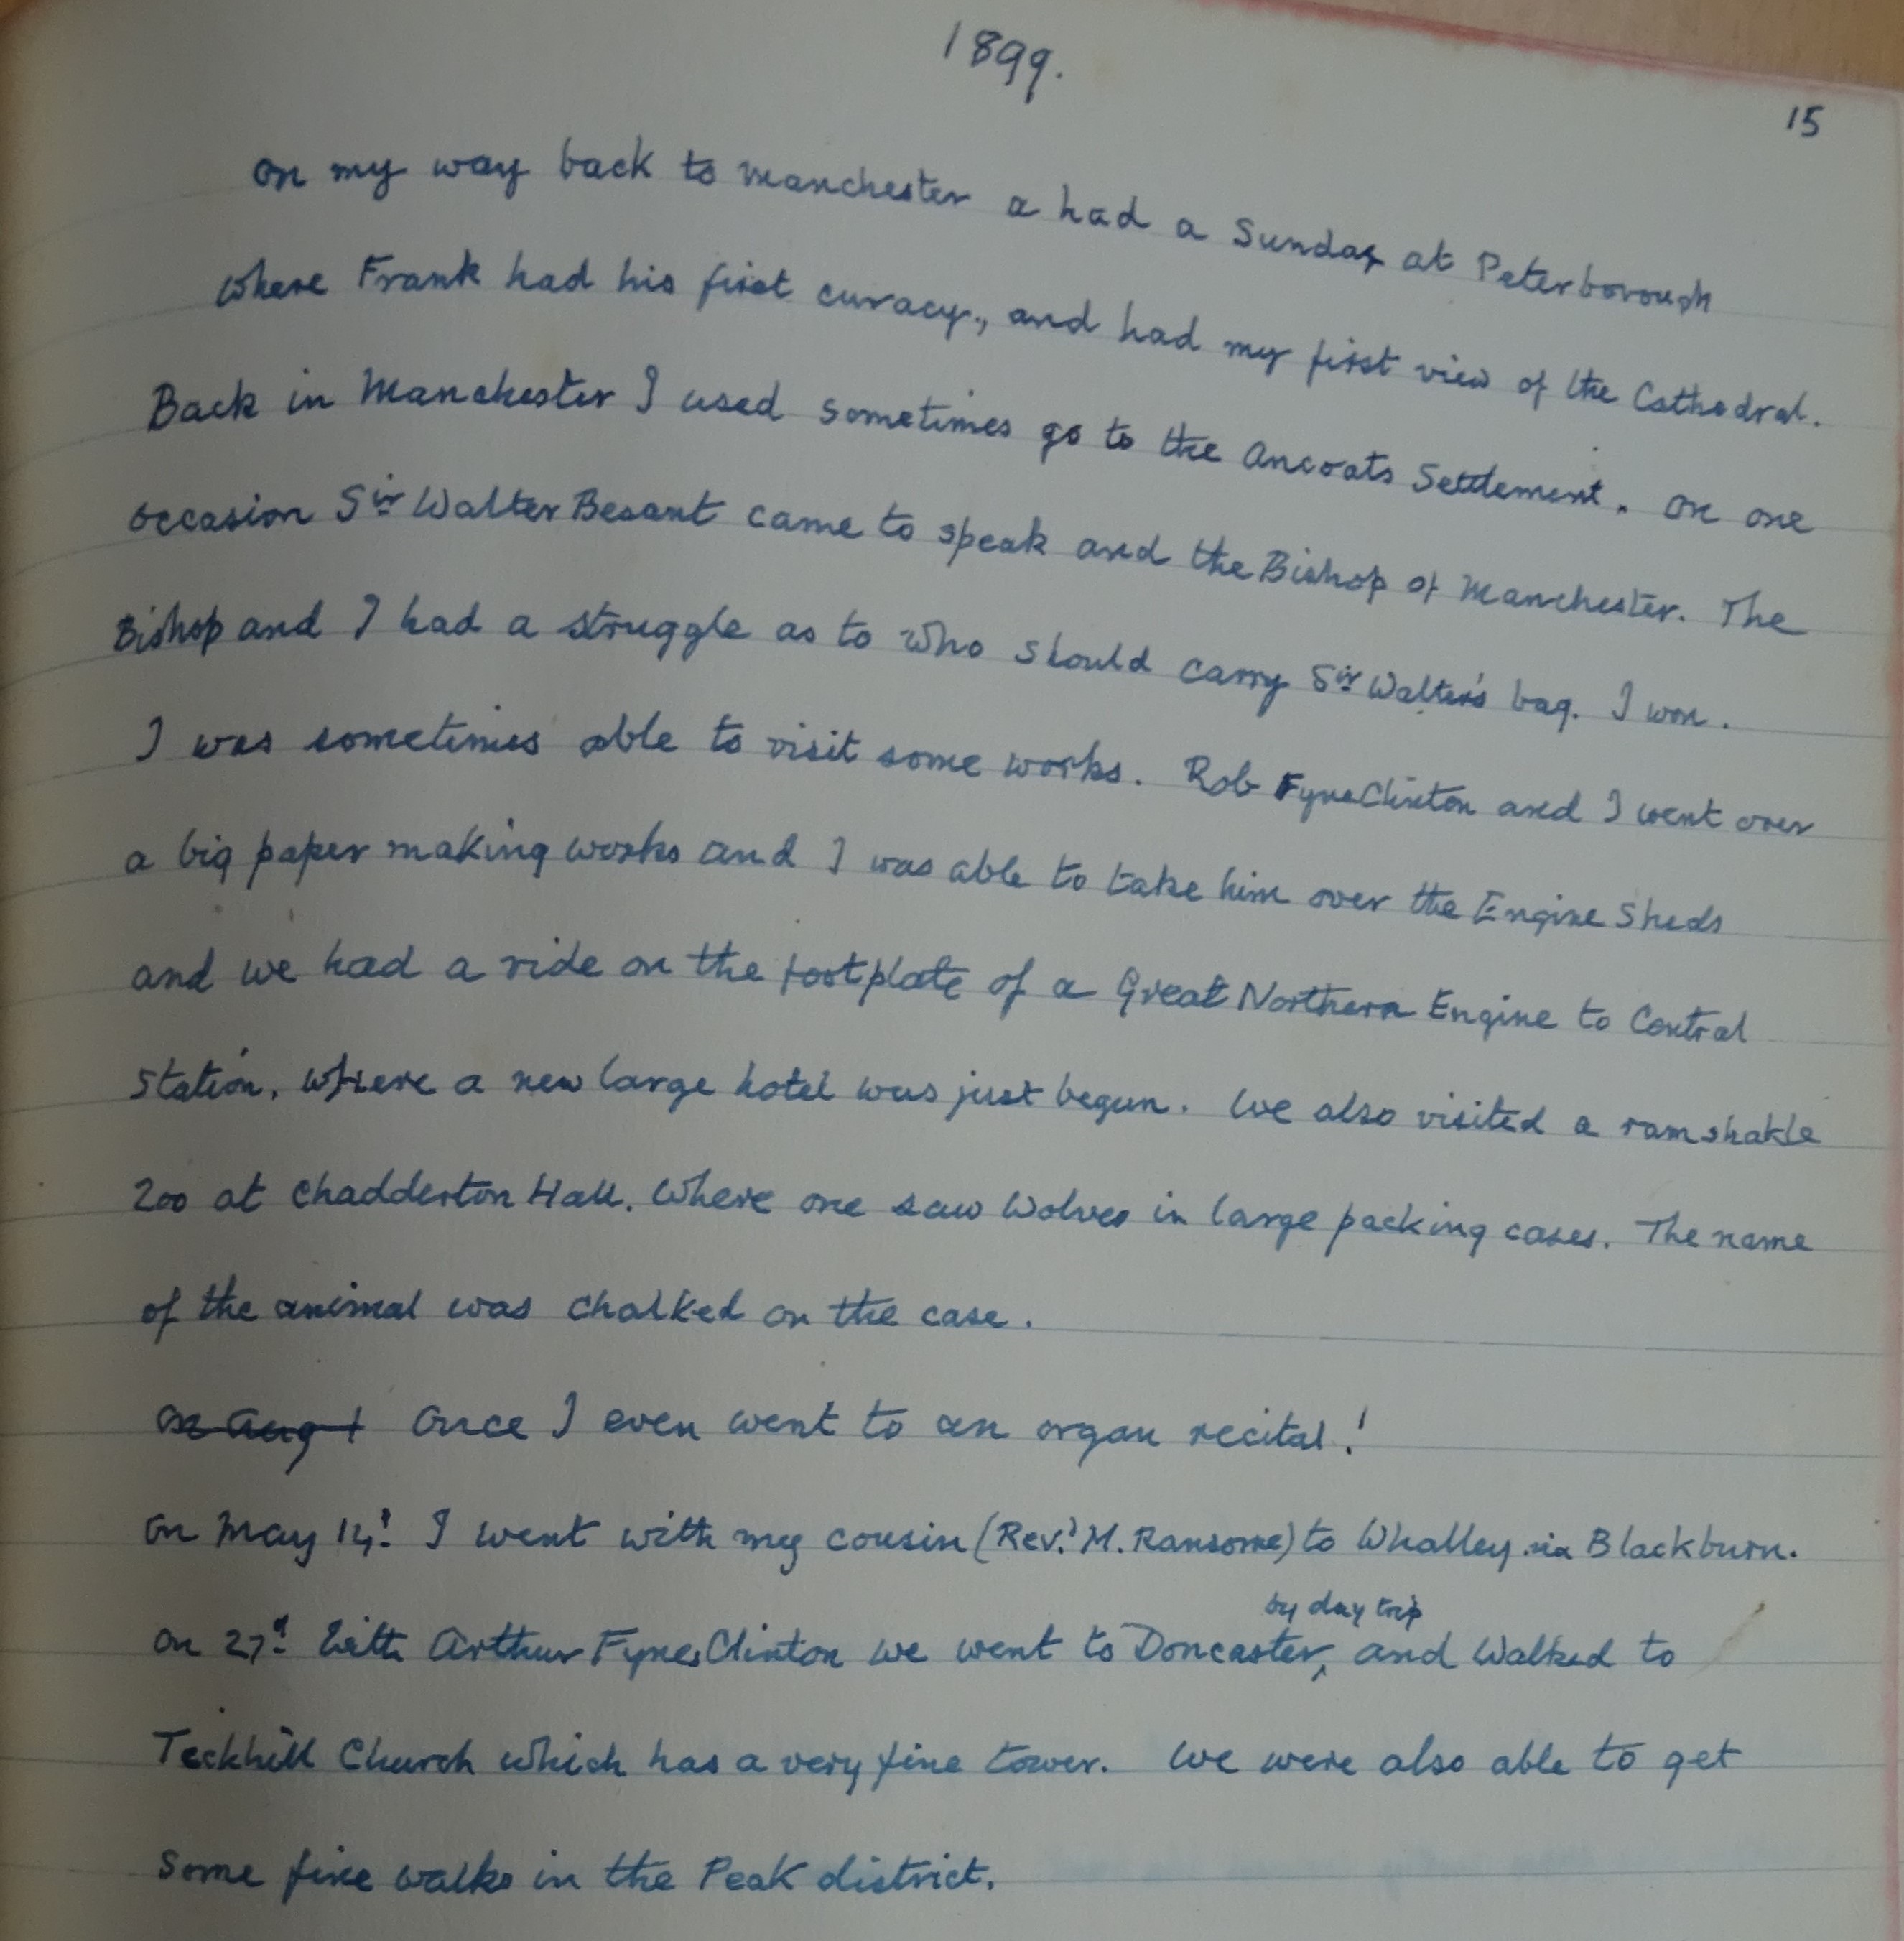 1899.
15
On my way back to Manchester a had a Sunday at Peterborough
where Frank had his first curacy., and had my first view of the Cathedral.
Back in Manchester I used sometimes go to the Ancoats Settlement. On one
occasion Sir Walter Besant came to speak and the Bishop of Manchester. The
Bishop and I had a struggle as to who should carry Sir Walter's bag. I won.
I was sometimes able to visit some works. Rob FynesClinton and I went over
a big paper making works and I was able to take him over the Engine Sheds
and we had a ride on the footplate of a Great Northern Engine to Central
Station, where a new large hotel was just begun. We also visited a ramshakle
Zoo at Chadderton Hall. Where one saw Wolves in large packing cases. The name
of the animal was chalked on the case.
On Aug 1 Once I even went to an organ recital!
On May 14th I went with my cousin (Revd M. Ransome) to Whalley via Blackburn.
by day trip
On 27th With Arthur FynesClinton we went to Doncaster, and Walked to
Teckhill Church which has a very fine tower. We were also able to get
some fine walks in the Peak district.